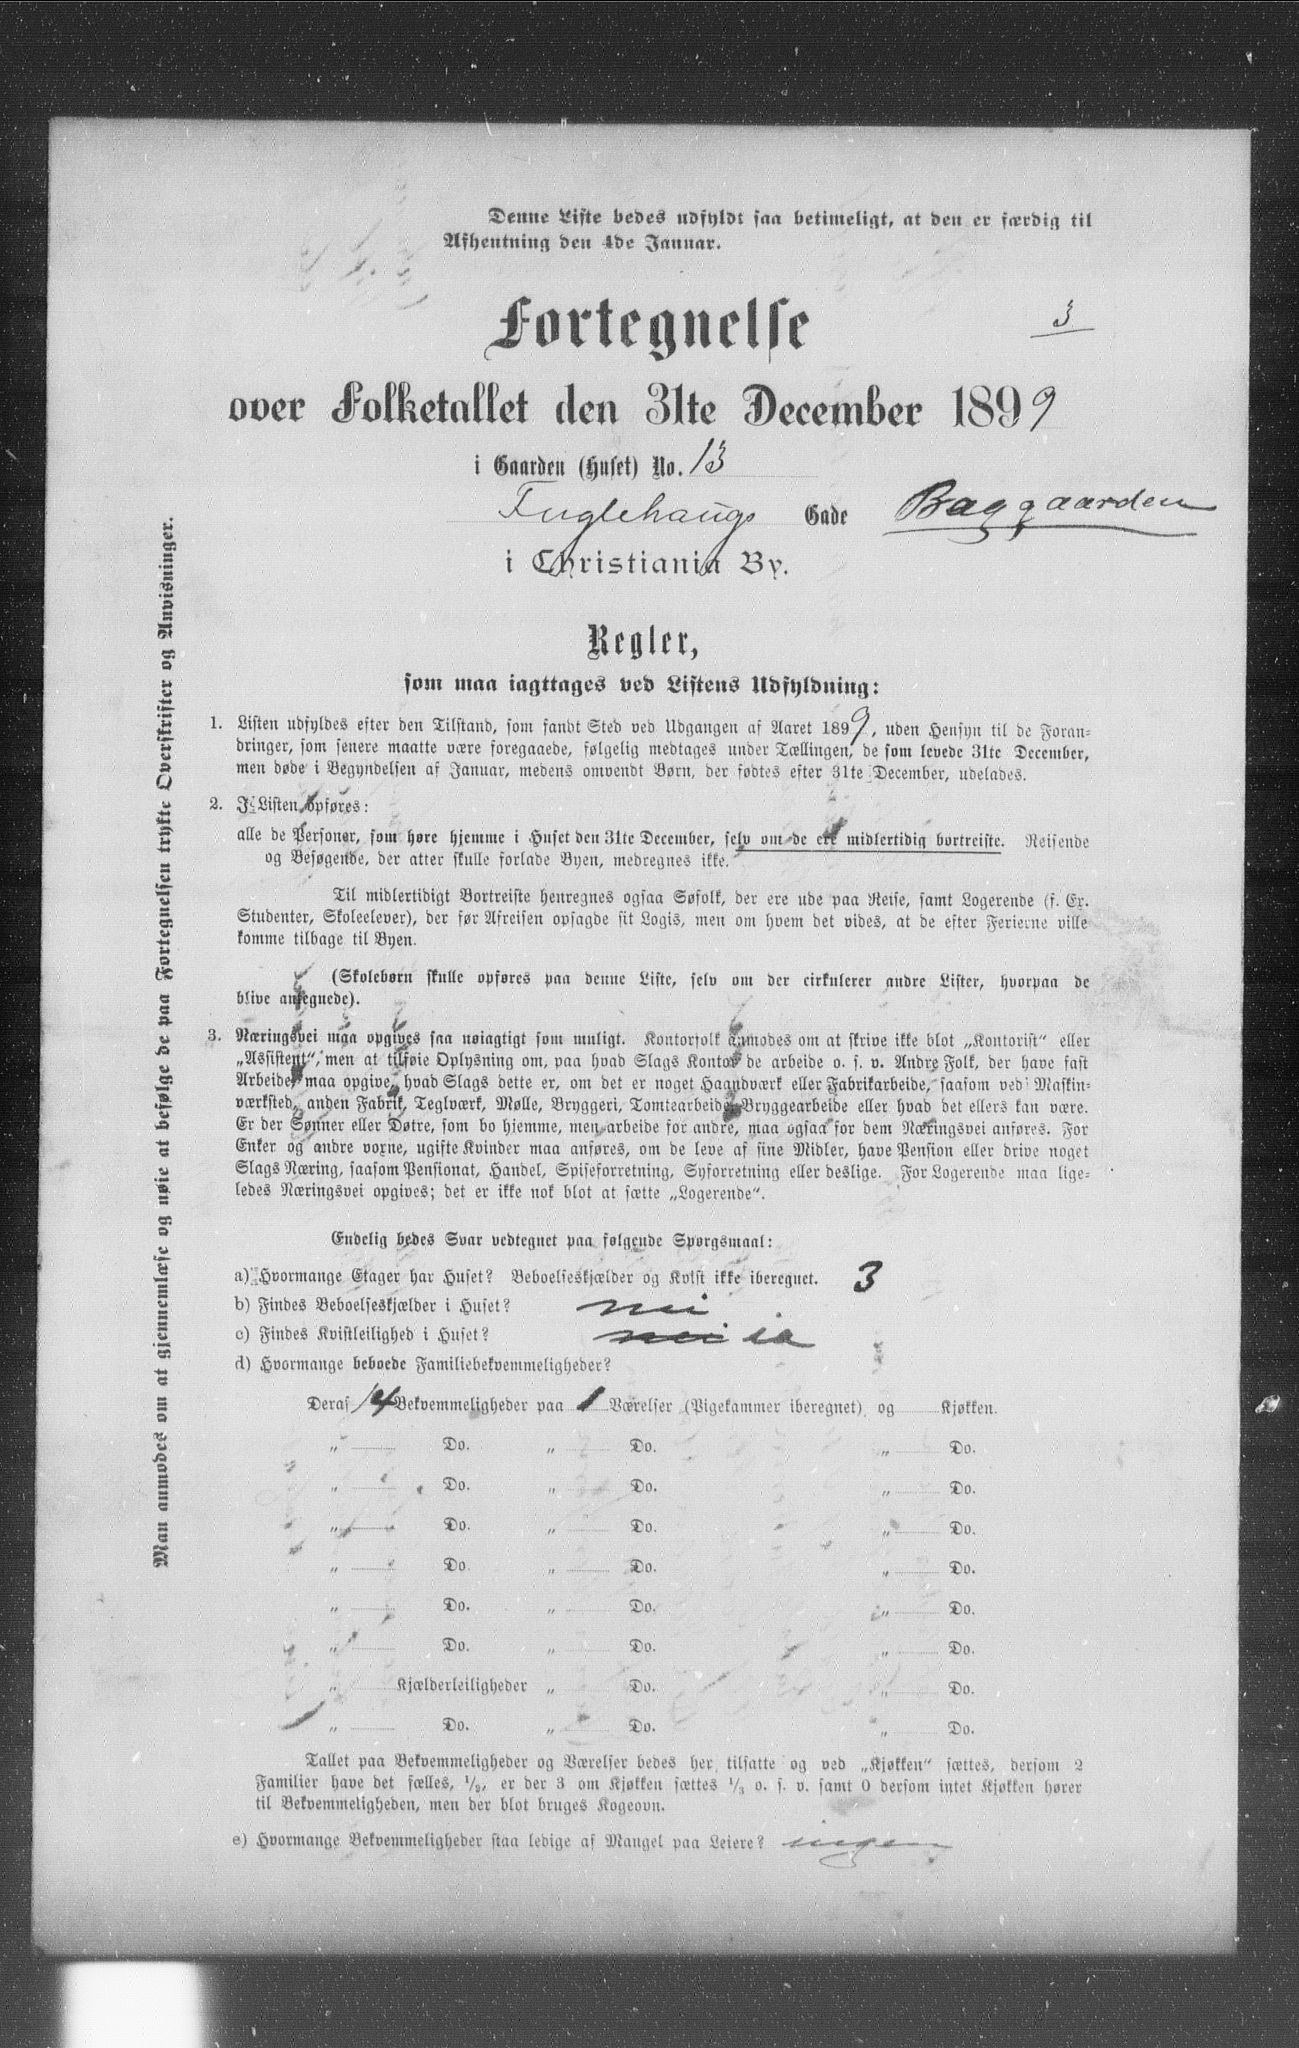 Denne Liste bedes udfyldt saa betimeligt, at den er færdig til
Afhentning den 4de Januar.
Fortegnelse
3
over Folketallet den 31te December 1899
i Gaarden (Huset) No. 13
Fuglehaugs Gade Baggaarden
i Christiania By.
Regler,
som maa iagttages ved Listens Udfyldning:
1. Listen udfyldes efter den Tilstand, som fandt Sted ved Udgangen af Aaret 1899, uden Hensyn til de Foran-
dringer, som senere maatte være foregaaede, følgelig medtages under Tællingen, de som levede 31te December,
men døde i Begyndelsen af Januar, medens omvendt Børn, der fødtes efter 31te December, udelades.
2. I Listen opføres:
alle de Personer, som høre hjemme i Huset den 31te December, selv om de ere midlertidig bortreiste. Reisende
og Besøgende, der atter skulle forlade Byen, medregnes ikke.
Til midlertidigt Bortreiste henregnes ogsaa Søfolk, der ere ude paa Reise, samt Logerende (f. Ex.
Studenter, Skoleelever), der før Afreisen opsagde sit Logis, men om hvem det vides, at de efter Ferierne ville
komme tilbage til Byen.
(Skolebørn skulle opføres paa denne Liste, selv om der cirkulerer andre Lister, hvorpaa de
blive antegnede).
3. Næringsvei maa opgives saa nøiagtigt som muligt. Kontorfolk anmodes om at skrive ikke blot „Kontorist“ eller
„Assistent“, men at tilføie Oplysning om, paa hvad Slags Kontor de arbeide o. s. v. Andre Folk, der have fast
Arbeide, maa opgive, hvad Slags dette er, om det er noget Haandværk eller Fabrikarbeide, saasom ved Maskin-
værksted, anden Fabrik, Teglværk, Mølle, Bryggeri, Tomtearbeide, Bryggearbeide eller hvad det ellers kan være.
Er der Sønner eller Døtre, som bo hjemme, men arbeide for andre, maa ogsaa for dem Næringsvei anføres. For
Enker og andre voxne, ugifte Kvinder maa anføres, om de leve af sine Midler, have Pension eller drive noget
Slags Næring, saasom Pensionat, Handel, Spiseforretning, Syforretning eller deslige. For Logerende maa lige-
ledes Næringsvei opgives; det er ikke nok blot at sætte „Logerende“.
Endelig bedes Svar vedtegnet paa følgende Spørgsmaal:
a) Hvormange Etager har Huset? Beboelseskjælder og Kvist ikke iberegnet. 3
b) Findes Beboelseskjælder i Huset? nei
c) Findes Kvistleilighed i Huset? nei ia
d) Hvormange beboede Familiebekvemmeligheder?
Deraf 14 Bekvemmeligheder paa 1 Værelser (Pigekammer iberegnet) og Kjøkken.
„ Do. „ Do. „ Do.
„ Do. „ Do. „ Do.
„ Do. „ Do. „ Do.
„ Do. „ Do. „ Do.
„ Do. „ Do. „ Do.
„ Do. „ Do. „ Do.
„ Kjælderleiligheder „ Do. „ Do.
„ Do. „ Do. „ Do.
Tallet paa Bekvemmeligheder og Værelser bedes her tilsatte og ved „Kjøkken“ sættes, dersom 2
Familier have det fælles, 1/2, er der 3 om Kjøkken sættes 1/3 o. s. v. samt 0 dersom intet Kjøkken hører
til Bekvemmeligheden, men der blot bruges Kogeovn.
e) Hvormange Bekvemmeligheder staa ledige af Mangel paa Leiere? ingen
Man anmodes om at gjennemlæse og nøie at befølge de paa Fortegnelsen trykte Overskrifter og Anvisninger.